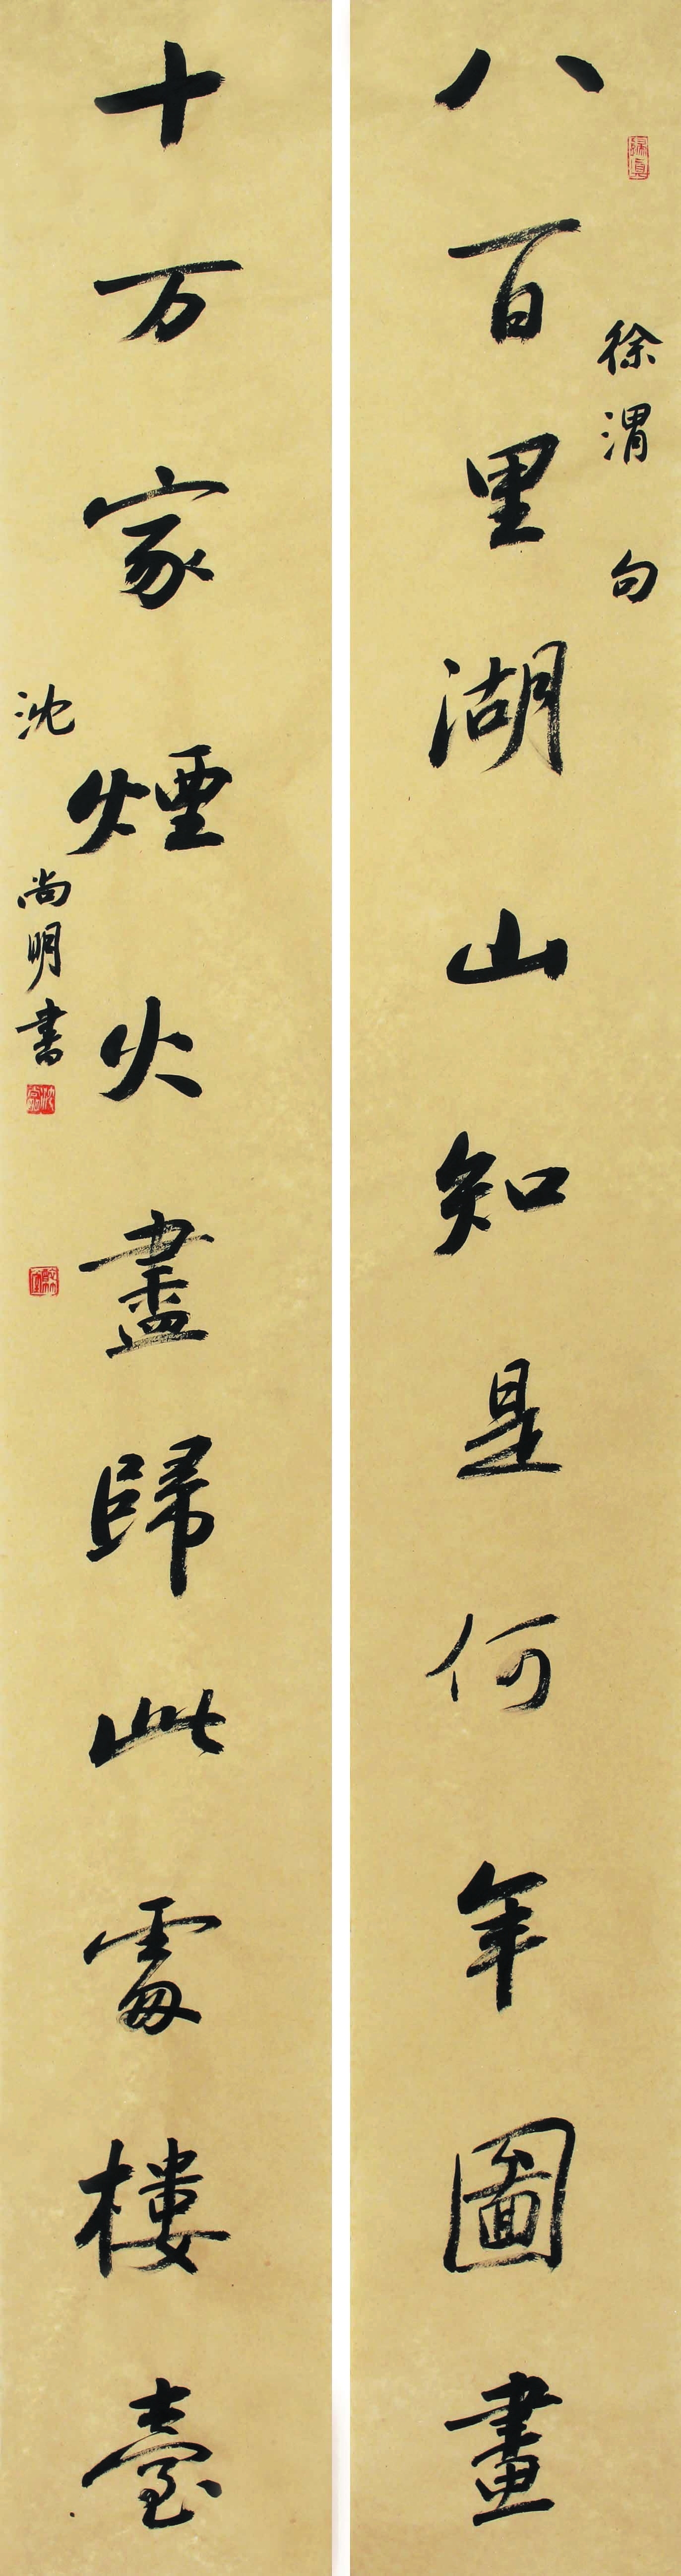 八百里湖山知是何年圖畫
徐渭句
十万家煙火盡歸此處樓臺
沈尚明書